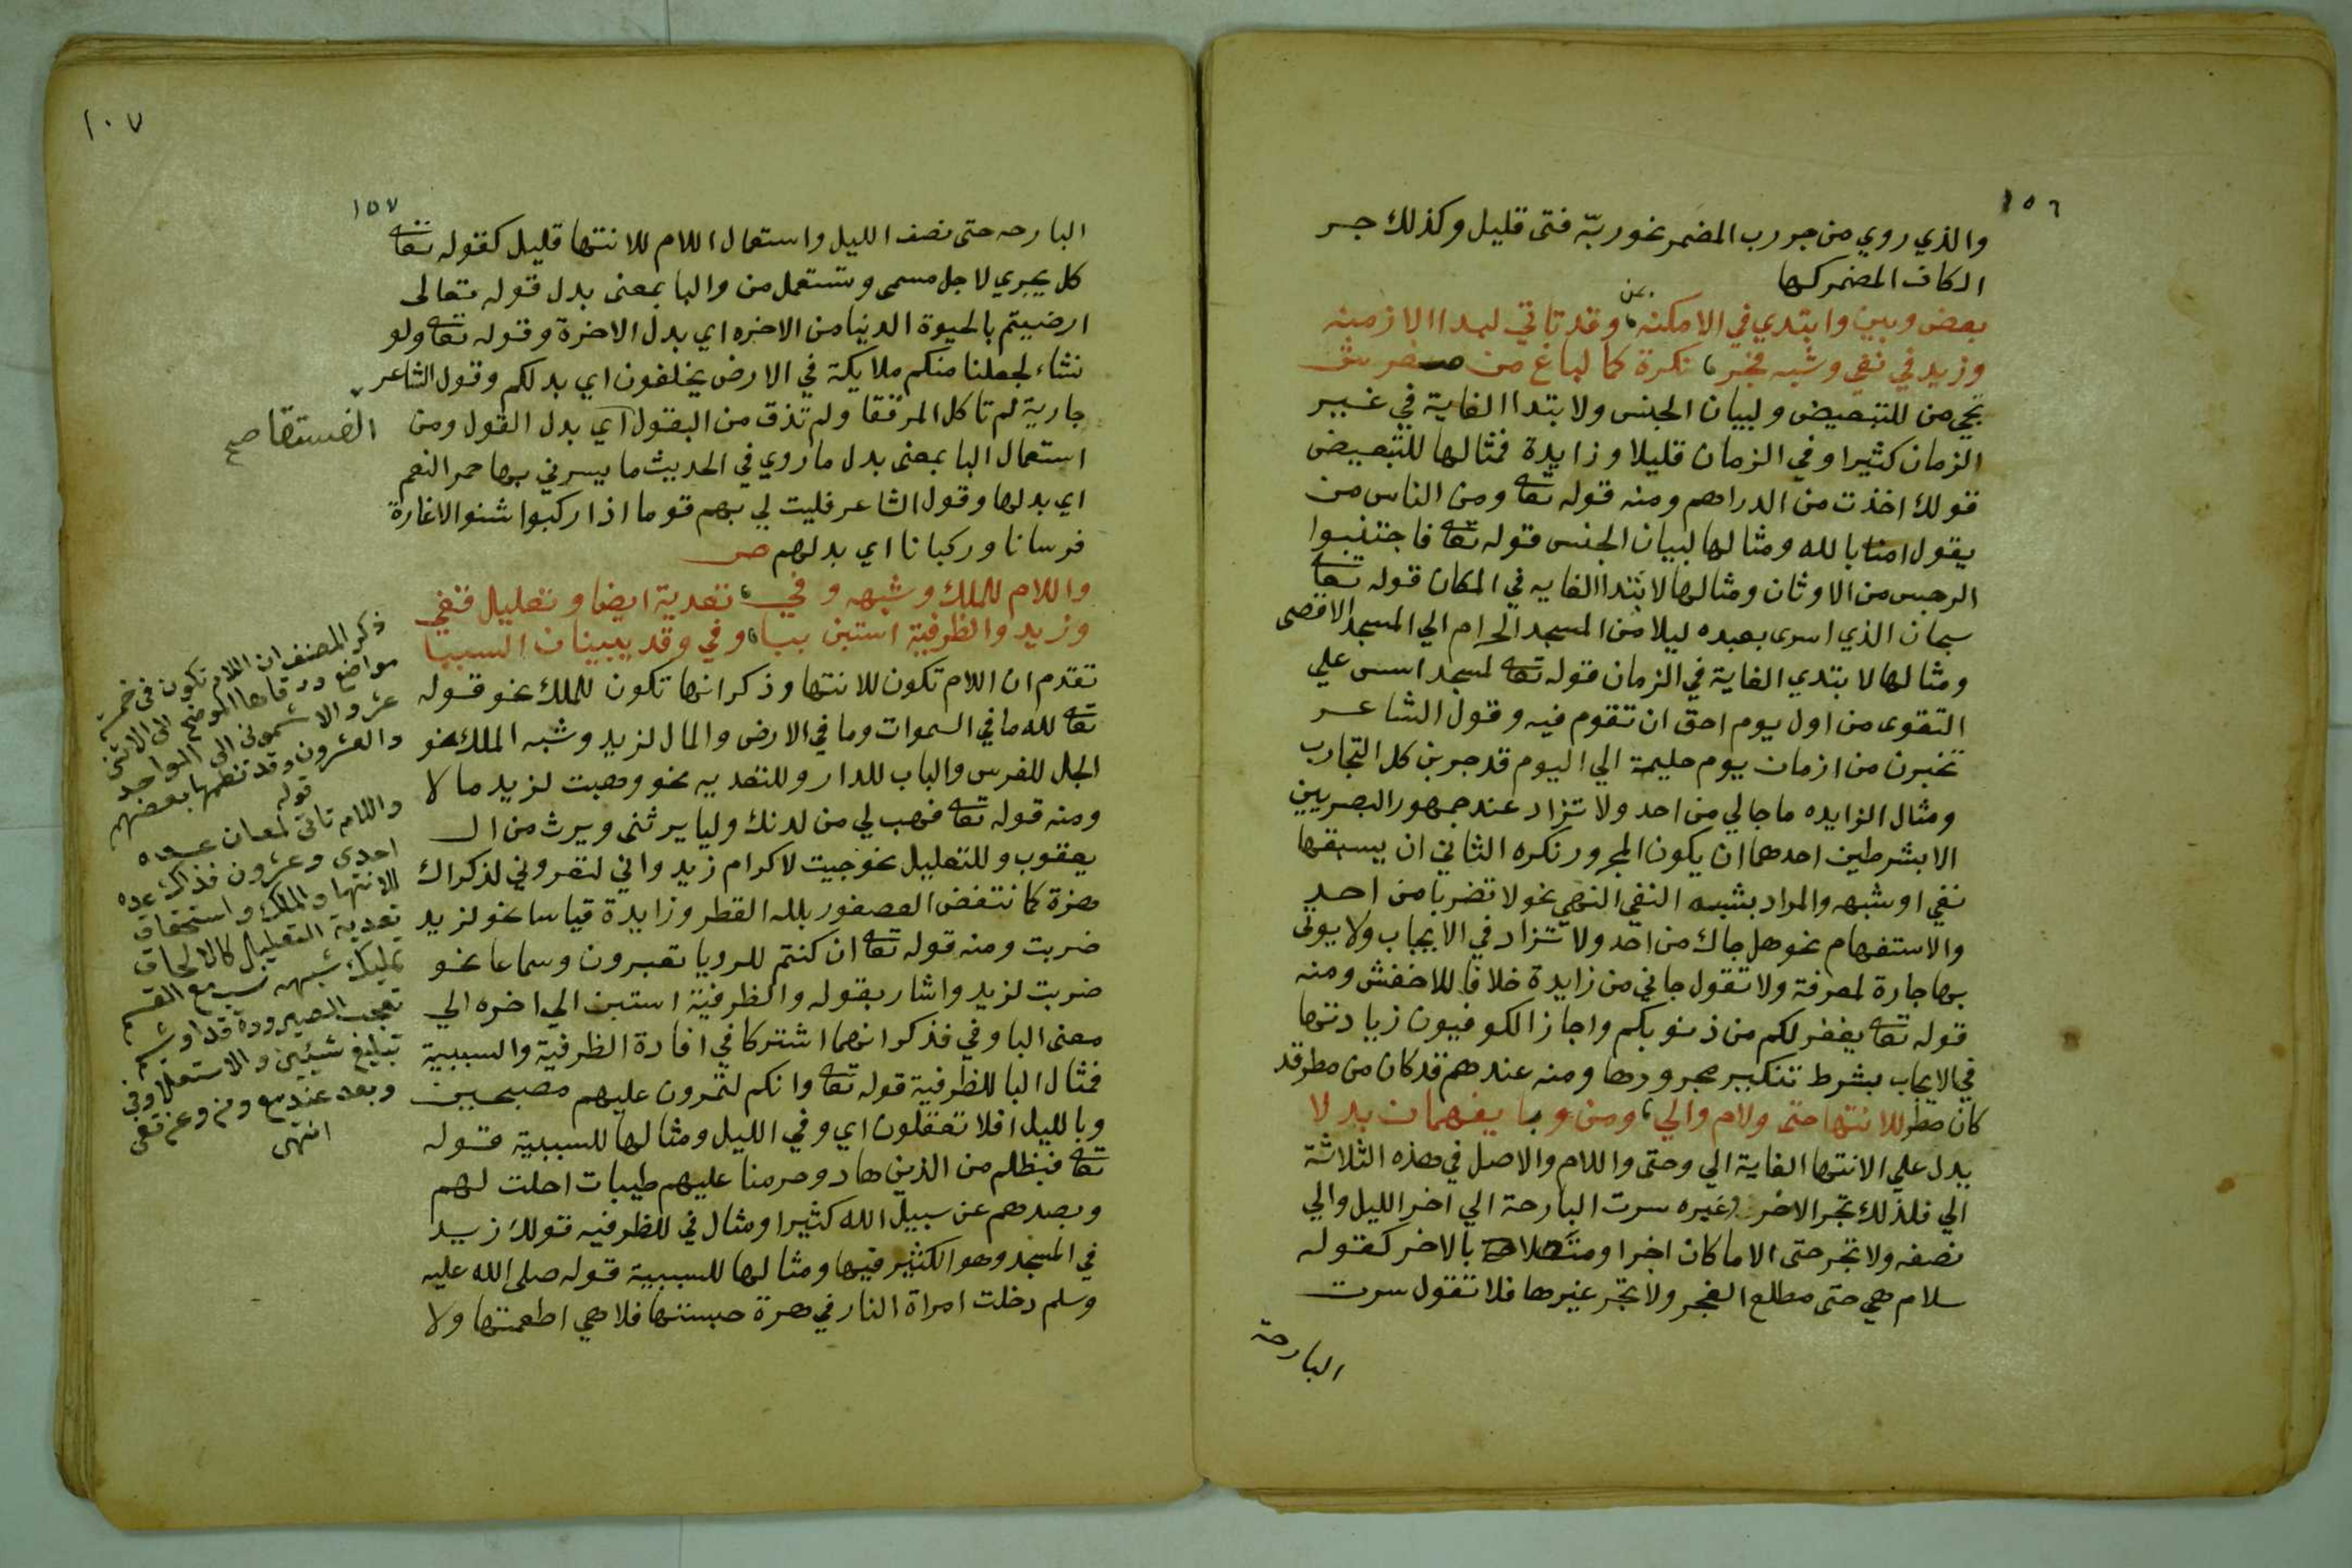 ١٥٦
والذي روي من جر رب المضمر نحو ربّه فتى قليل وكذلك جر
الكاف المضمر كها
بعض وبين وابتدي في الامكنه بمن وقد تاتي لبدا الازمنه
وزيد في نفي وشبه فجر نكرة كما لباغ من مفر ش
تجي من للتبعيض ولبيان الجنس ولابتدا الغاية في غير
الزمان كثيرا وفي الزمان قليلا وزايدة فمثالها للتبعيض
قولك اخذت من الدراهم ومنه قوله تعا ومن الناس من
يقول امنا بالله ومثالها لبيان الجنس قوله تعا فاجتنبوا
الرجس من الاوثان ومثالها لابتدا الغايه في المكان قوله تعا
سبحان الذي اسرى بعبده ليلا من المسجد الحرام الي المسجد الاقصى
ومثالها لابتدي الغاية في الزمان قوله تعا لمسجد اسس علي
التقوى من اول يوم احق ان تقوم فيه وقول الشاعر
تخيرن من ازمان يوم حليمة الي اليوم قد جربن كل التجارب
ومثال الزايده ما جالي من احد ولا تزاد عند جمهور البصريين
الا بشرطين احدهما ان يكون المجرور نكره الثاني ان يسبقها
نفي او شبهه والمراد بشبه النفي النهي نحو لا تضربا من احد
والاستفهام نحو هل جاك من احد ولا تزاد في الايجاب ولا يوتى
بها جارة لمعرفة ولا تقول جاني من زايدة خلافا للاخفش ومنه
قوله تعا يغفر لكم من ذنوبكم واجاز الكوفيون زيادتها
في الايجاب بشرط تنكير مجرورها ومنه عندهم قد كان من مطر قد
كان مطر للانتها حتى ولام والي ومن وبا يفهمان بدلا
يدل علي الانتها الغاية الي وحتى واللام والاصل في هذه الثلاثة
الي فلذلك تجر الاخر وغيره سرت البارحة الي اخر الليل والي
نصفه ولا تجر حتى الا ما كان اخرا ومتصلا بالاخر كقوله
سلام هي حتى مطلع الفجر ولا تجر غيرها فلا تقول سرت
البارحة
١٠٧
١٥٧
البارحه حتى نصف الليل واستعمال اللام للانتها قليل كقوله تعا
كل يجري لاجل مسمى وتستعمل من والبا بمعنى بدل قوله تعالى
ارضيتم بالحيوة الدنيا من الاخره اي بدل الاخرة وقوله تعا ولو
نشاء لجعلنا منكم ملايكة في الارض يخلفون اي بدلكم وقول الشاعر
جارية لم تاكل المرققا ولم تذق من البقول اي بدل القول ومن
الفستقا صح
استعمال البا بمعنى بدل ما روي في الحديث ما يسرني بها حمر النعم
اي بدلها وقول الشاعر فليت لي بهم قوما اذا ركبوا شنوا الاغارة
فرسانا وركبانا اي بدلهم ص
واللام للملك وشبهه وفي تعدية ايضا وتعليل قفي
وزيد والظرفية استبن ببا وفي وقد يبينان السببا
تقدم ان اللام تكون للانتها وذكر انها تكون للملك نحو قوله
تعا لله ما في السموات وما في الارض والمال لزيد وشبه الملك نحو
الجل للفرس والباب للدار وللتعديه نحو وهبت لزيد مالا
ومنه قوله تعا فهب لي من لدنك وليا يرثنى ويرث من ال
يعقوب وللتعليل نحو جيت لاكرام زيد واني لتعروني لذكراك
هزة كما نتفض العصفور بلله القطر وزايدة قياسا نحو لزيد
ضربت ومنه قوله تعا ان كنتم للرويا تعبرون وسماعا نحو
ضربت لزيد واشار بقوله والظرفية استبن الي اخره الي
معنى البا وفي فذكر انهما اشتركا في افادة الظرفية والسببية
فمثال البا للظرفية قوله تعا وانكم لتمرون عليهم مصبحين
وبالليل افلا تعقلون اي وفي الليل ومثالها للسببية قوله
تعا فبظلم من الذين هادو حرمنا عليهم طيبات احلت لهم
وبصدهم عن سبيل الله كثيرا ومثال في للظرفيه قولك زيد
في المسجد وهو الكثير فيها ومثالها للسببية قوله صلى الله عليه
وسلم دخلت امراة النار في هرة حبستها فلا هي اطعمتها ولا
ذكر المصنف ان اللام تكون في خمسة
مواضع ورقاها الموضح الى الاثنى
عشر والاشموني الى الواحد
والعشرون وقد نظمها بعضهم
قوله
واللام تاتي لمعان عده
احدى وعشرون فذاك عده
للانتها والملك واستحقاق
تعدية التعليل كالالحاق
تمليك شبهه مع القسم
تعجب الصيرورة
تبليغ تبيين والاستعلا وفي
وبعد عند مع ومن وعن تفى
انتهى